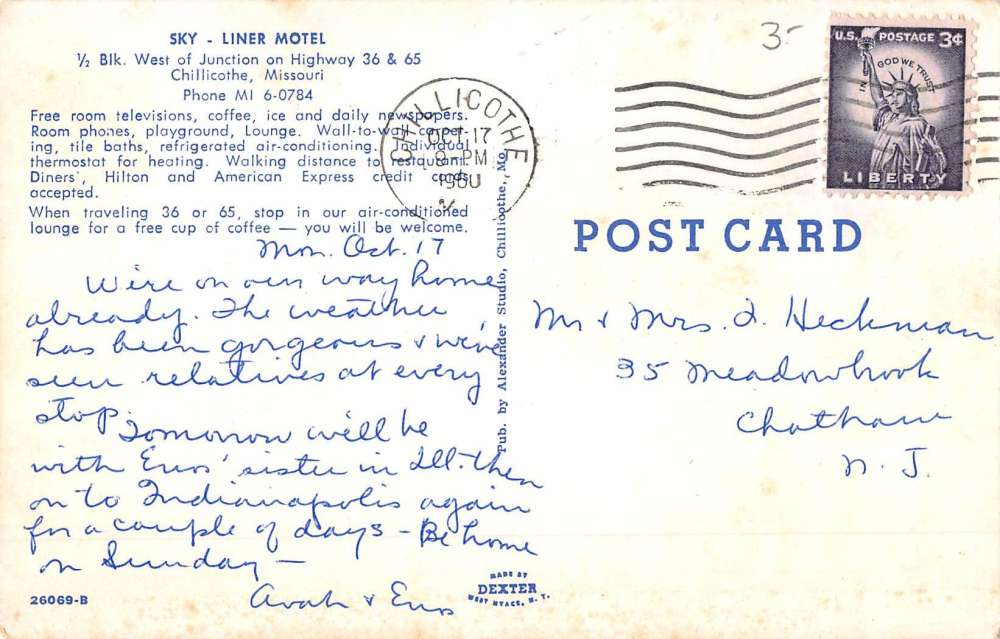 SKY - LINER MOTEL
½ Blk. West of Junction on Highway 36 & 65
Chillicothe, Missouri
Phone MI 6-0784
Free room televisions, coffee, ice and daily newspapers.
Room phones, playground, Lounge. Wall-to-wall carpet-
ing, tile baths, refrigerated air-conditioning. Individual
thermostat for heating. Walking distance to restaurant.
Diners', Hilton and American Express credit cards
accepted.
When traveling 36 or 65, stop in our air-conditioned
lounge for a free cup of coffee — you will be welcome.
Mon. Oct. 17
We're on our way home
already. The weather
has been gorgeous & we've
seen relatives at every
stop.
Tomorrow will be
with Enos' sister in Ill. then
on to Indianapolis again
for a couple of days - Be home
on Sunday -
Avah & Enos
26069-B
Pub. by Alexander Studio, Chillicothe, Mo.
MADE BY
DEXTER
WEST NYACK, N. Y.
CHILLICOTHE
OCT 17
PM
1960
3-
U.S. POSTAGE 3¢
IN GOD WE TRUST
LIBERTY
POST CARD
Mr & Mrs. I. Heckman
35 Meadowbrook
Chatham
N. J.